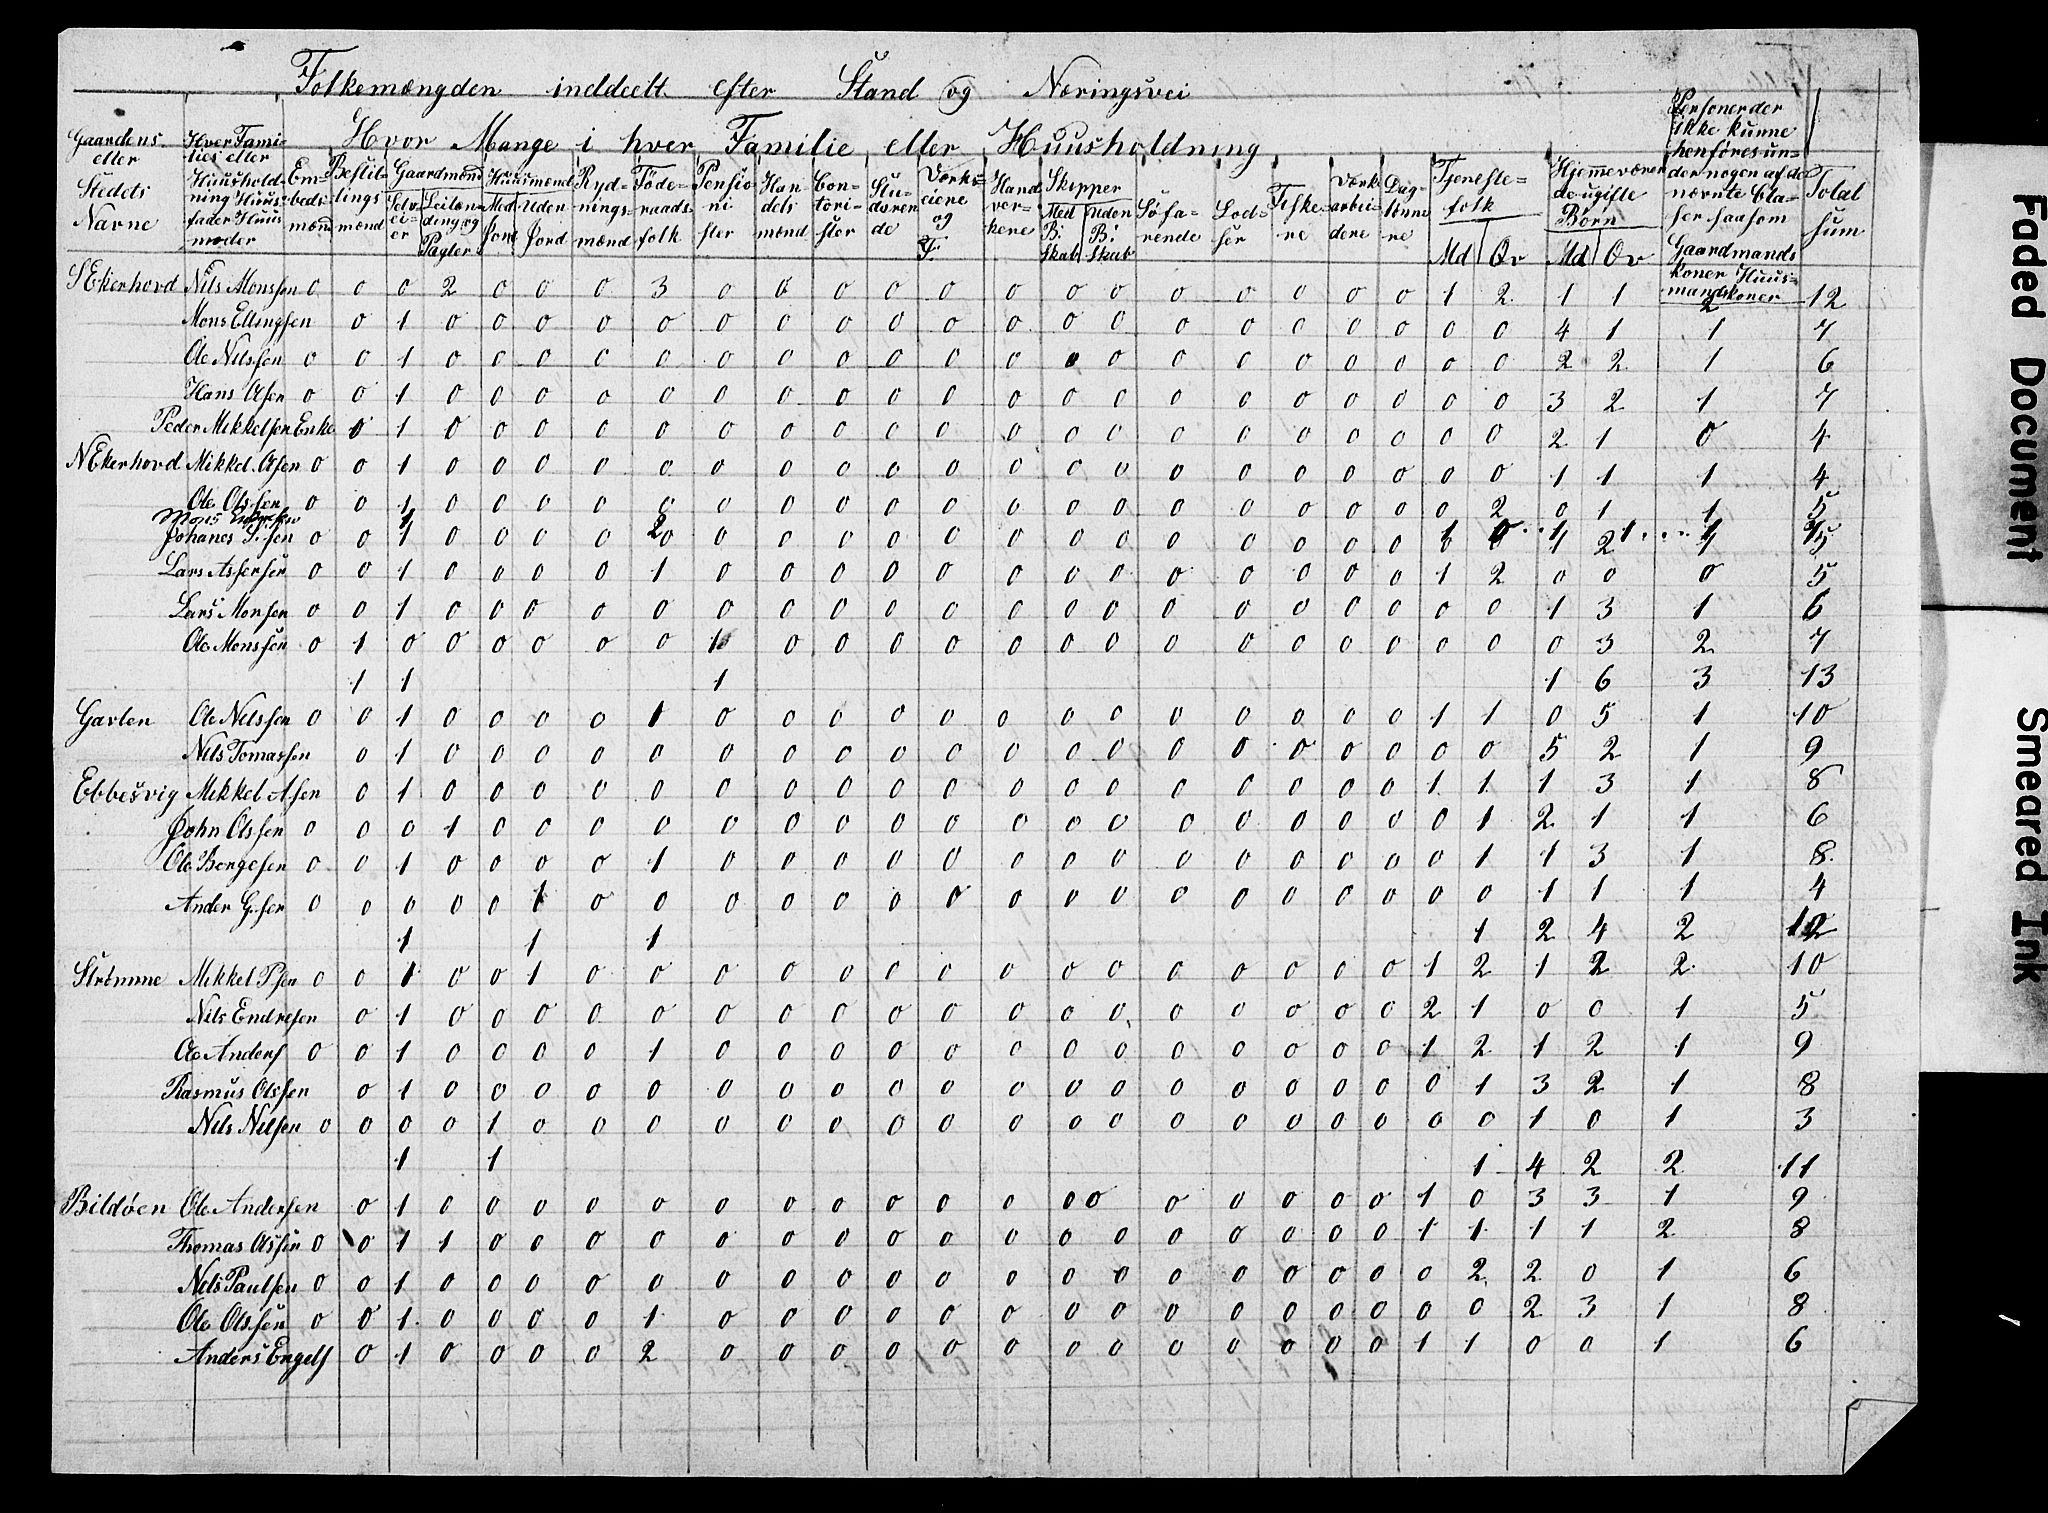 Folkemængden inddeelt efter Stand og Næringsvei
Hvor Mange i hver Familie eller Huusholdning
Gaardens eller Stedets Navne | Hver Families eller Huusholdning Huusfader Huusmoder | Embedsmænd | Bestillingsmænd | Gaardmænd: Selveier | Leilænding og Pagter | Huusmænd: Med Jord | Uden Jord | Rydningsmænd | Føderaadsfolk | Pensionister | Handelsmænd | Contorister | Studerende | Værkseiere og F. | Handverkere | Skipper: Med B:skab | Uden B:skab | Søfarende | Lodser | Fiskere | Værkarbeidere | Daglønnere | Tjenestefolk: Md | Qv | Hjemmeværende ugifte Børn: Md | Qv | Personer der ikke kunne henføres under nogen af de nævnte Classer saasom Gaardmandskoner Huusmandskoner | Total sum
S Ekerhovd Nils Monssen 0 0 0 2 0 0 0 3 0 0 0 0 0 0 0 0 0 0 0 0 0 1 2 1 1 2 12
Mons Ellingsen 0 1 0 0 0 0 0 0 0 0 0 0 0 0 0 0 0 0 0 0 0 0 4 1 1 7
Ole Nilssen 0 0 1 0 0 0 0 0 0 0 0 0 0 0 0 0 0 0 0 0 0 0 0 2 2 1 6
Hans Olsen 0 0 1 0 0 0 0 0 0 0 0 0 0 0 0 0 0 0 0 0 0 0 0 3 2 1 7
Peder Mikkelsen Enke 0 1 0 0 0 0 0 0 0 0 0 0 0 0 0 0 0 0 0 0 0 0 2 1 0 4
N Ekerhovd Mikkel Olsen 0 0 1 0 0 0 0 0 0 0 0 0 0 0 0 0 0 0 0 0 0 0 0 1 1 1 4
Ole Olssen 0 0 1 0 0 0 0 0 0 0 0 0 0 0 0 0 0 0 0 0 0 0 2 0 1 1 5
Mons 1 2 1 0 1 1 1
Johanes 0 0 1 0 0 0 0 0 0 0 0 0 0 0 0 0 0 0 0 0 0 0 0 1 2 1 5
Lars Assersen 0 0 1 0 0 0 0 1 0 0 0 0 0 0 0 0 0 0 0 0 0 1 2 0 0 0 5
Lars Monsen 0 0 1 0 0 0 0 0 0 0 0 0 0 0 0 0 0 0 0 0 0 0 0 1 3 1 6
Ole Monssen 0 1 0 0 0 0 0 0 1 0 0 0 0 0 0 0 0 0 0 0 0 0 0 0 3 2 7
1 1 1 1 6 3 13
Garten Ole Nelssen 0 0 1 0 0 0 0 1 0 0 0 0 0 0 0 0 0 0 0 0 0 1 1 0 5 1 10
Nils Tomassen 0 1 0 0 0 0 0 0 0 0 0 0 0 0 0 0 0 0 0 0 0 0 5 2 1 9
Ebbesvig Mikkel Asen 0 1 0 0 0 0 0 0 0 0 0 0 0 0 0 0 0 0 0 0 1 1 1 3 1 8
John Olssen 0 0 0 1 0 0 0 0 0 0 0 0 0 0 0 0 0 0 0 0 0 0 1 2 1 1 6
Ole Borgesen 0 0 1 0 0 0 0 1 0 0 0 0 0 0 0 0 0 0 0 0 0 0 1 1 3 1 8
Ander G.sen 0 0 0 0 0 1 0 0 0 0 0 0 0 0 0 0 0 0 0 0 0 0 0 1 1 1 4
1 1 1 1 2 4 2 12
Strømme Mikkel Psen 0 0 1 0 0 1 0 0 0 0 0 0 0 0 0 0 0 0 0 0 0 1 2 1 2 2 10
Nils Endresen 0 1 0 0 0 0 0 0 0 0 0 0 0 0 0 0 0 0 0 0 2 1 0 0 1 5
Ole Anders 0 0 1 0 0 0 0 1 0 0 0 0 0 0 0 0 0 0 0 0 0 1 2 1 2 1 9
Rasmus Olssen 0 1 0 0 0 0 0 0 0 0 0 0 0 0 0 0 0 0 0 0 0 1 3 2 1 8
Nils Nilsen 0 0 0 0 1 0 0 0 0 0 0 0 0 0 0 0 0 0 0 0 0 0 0 1 0 1 3
1 1 1 4 2 2 11
Bildøen Ole Andersen 0 1 0 0 0 0 0 0 0 0 0 0 0 0 0 0 0 0 0 0 1 0 3 3 1 9
Thomas Olssen 0 0 1 1 0 0 0 0 0 0 0 0 0 0 0 0 0 0 0 0 0 1 1 1 1 2 8
Nels Paulsen 0 0 1 0 0 0 0 0 0 0 0 0 0 0 0 0 0 0 0 0 0 0 2 2 0 1 6
Ole Olssen 0 0 1 0 0 0 0 1 0 0 0 0 0 0 0 0 0 0 0 0 0 0 0 2 3 1 8
Anders Engels 0 1 0 0 0 0 2 0 0 0 0 0 0 0 0 0 0 0 0 0 1 1 0 0 1 6
Faded Document
Smeared Ink